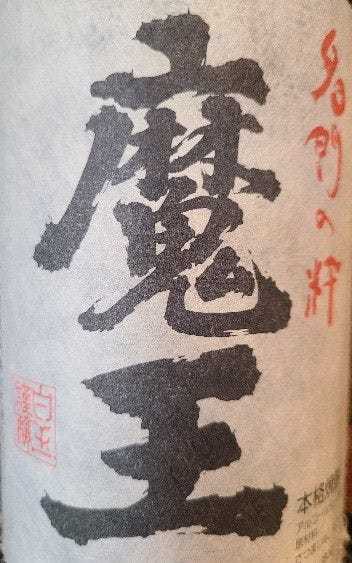 名門の粋
魔王
本格焼酎